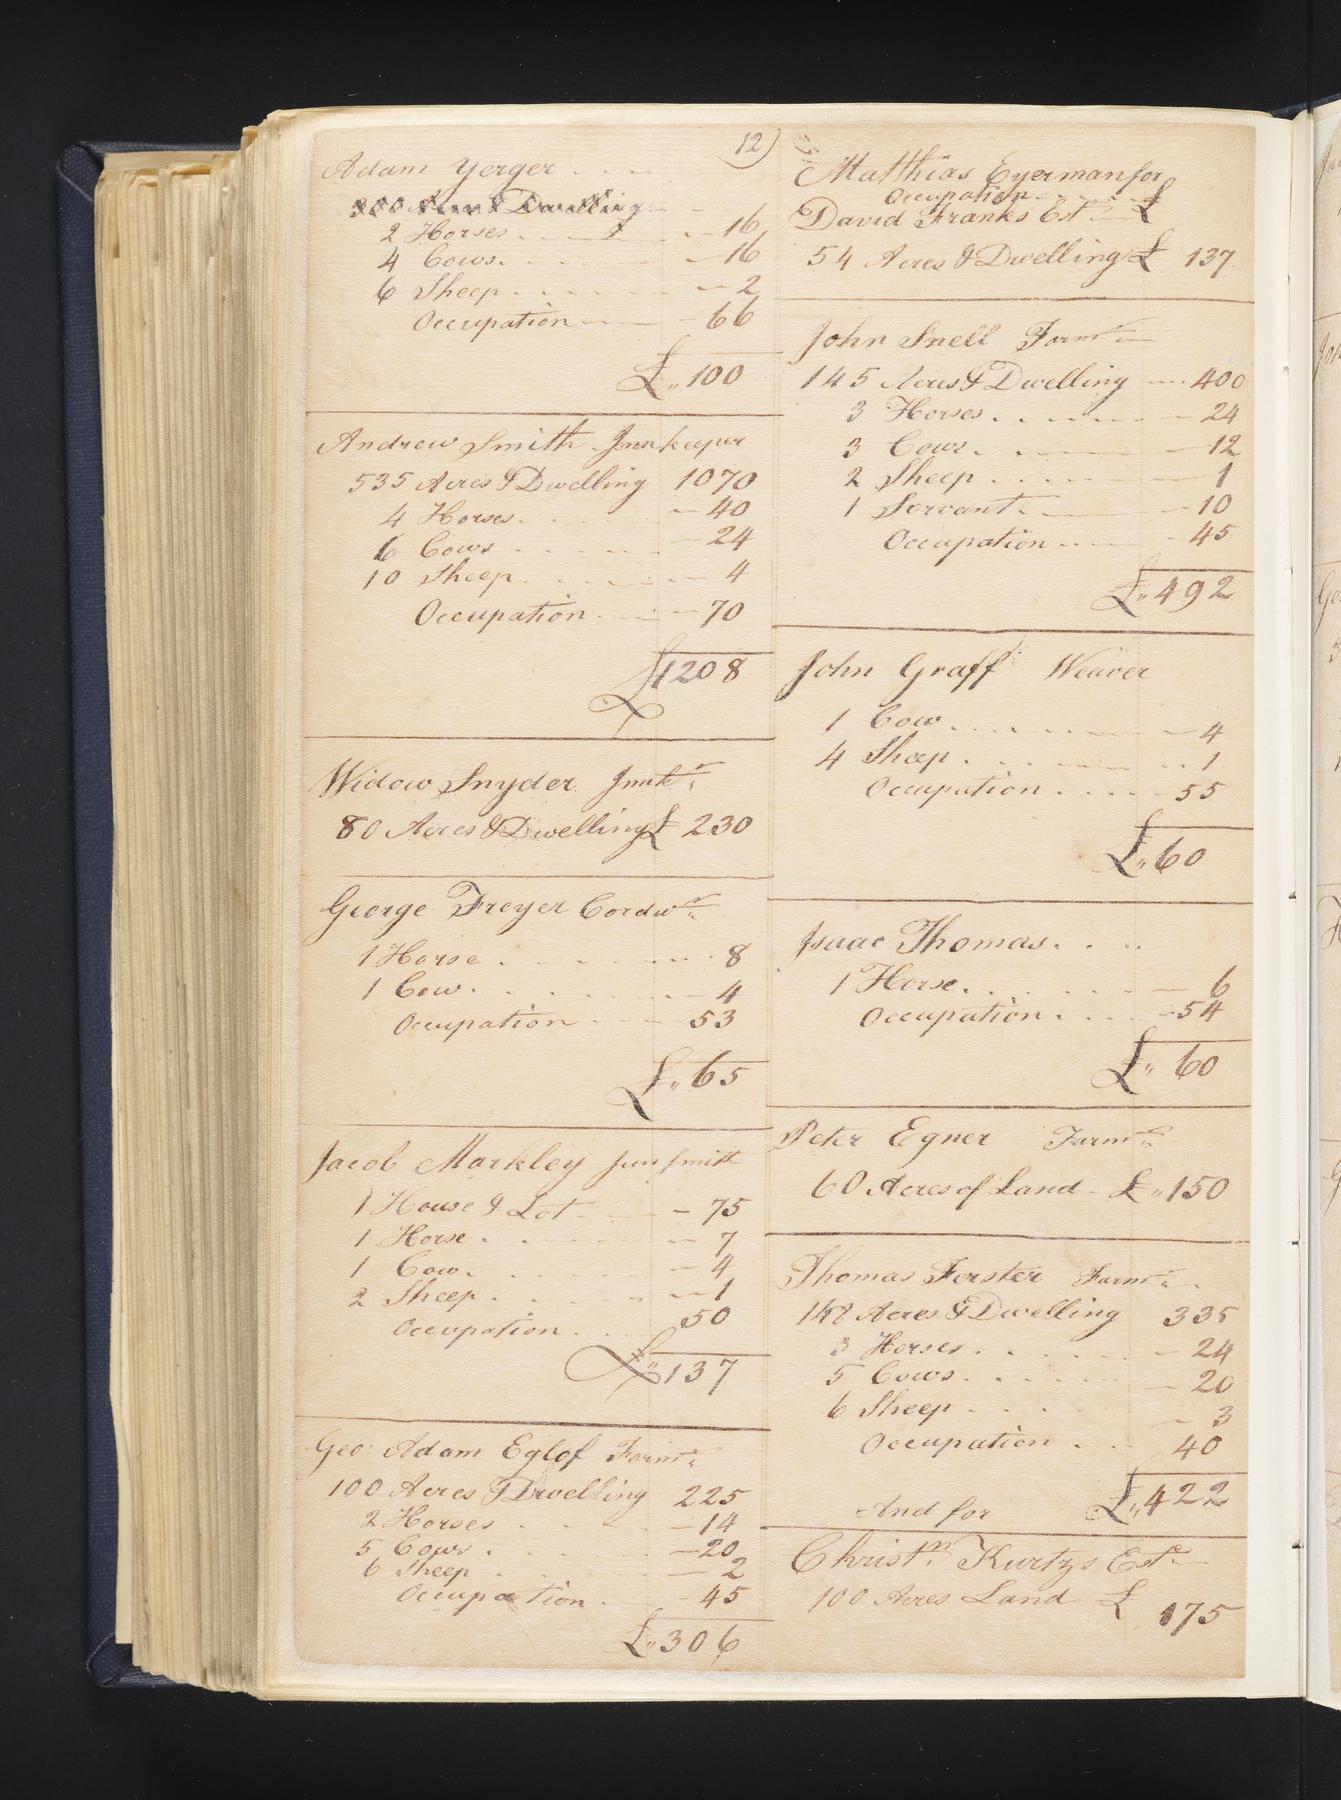 12)
Adam Yerger
2 Horses 16
4 Cows 16
6 Sheep 2
Occupation 66
£ 100
Andrew Smith Innkeeper
535 Acres & Dwelling 1070
4 Horses 40
6 Cows 24
10 Sheep 4
Occupation 70
£1208
Widow Snyder Innkr
80 Acres & Dwelling £ 230
George Freyer Cordwr
1 Horse 8
1 Cow 4
Occupation 53
£ 65
Jacob Markley Jun Smith
1 House & Lot 75
1 Horse 7
1 Cow 4
2 Sheep 1
Occupation 50
£137
Geo: Adam Eglof Farmr
100 Acres & Dwelling 225
2 Horses 14
5 Cows 20
6 Sheep 2
Occupation 45
£ 306
Matthias Eyerman for
Occupation
David Franks Est £
54 Acres & Dwelling £ 137
John Snell Farmr
145 Acres & Dwelling 400
3 Horses 24
3 Cows 12
2 Sheep 1
1 Servant 10
Occupation 45
£ 492
John Graff Weaver
1 Cow 4
4 Sheep 1
Occupation 55
£ 60
Isaac Thomas
1 Horse 6
Occupation 54
£ 60
Peter Egner Farmr
60 Acres of Land £ 150
Thomas Forster Farmr
148 Acres & Dwelling 335
3 Horses 24
5 Cows 20
6 Sheep 3
Occupation 40
£ 422
And for
Christn Kurtzs Este
100 Acres Land £ 175